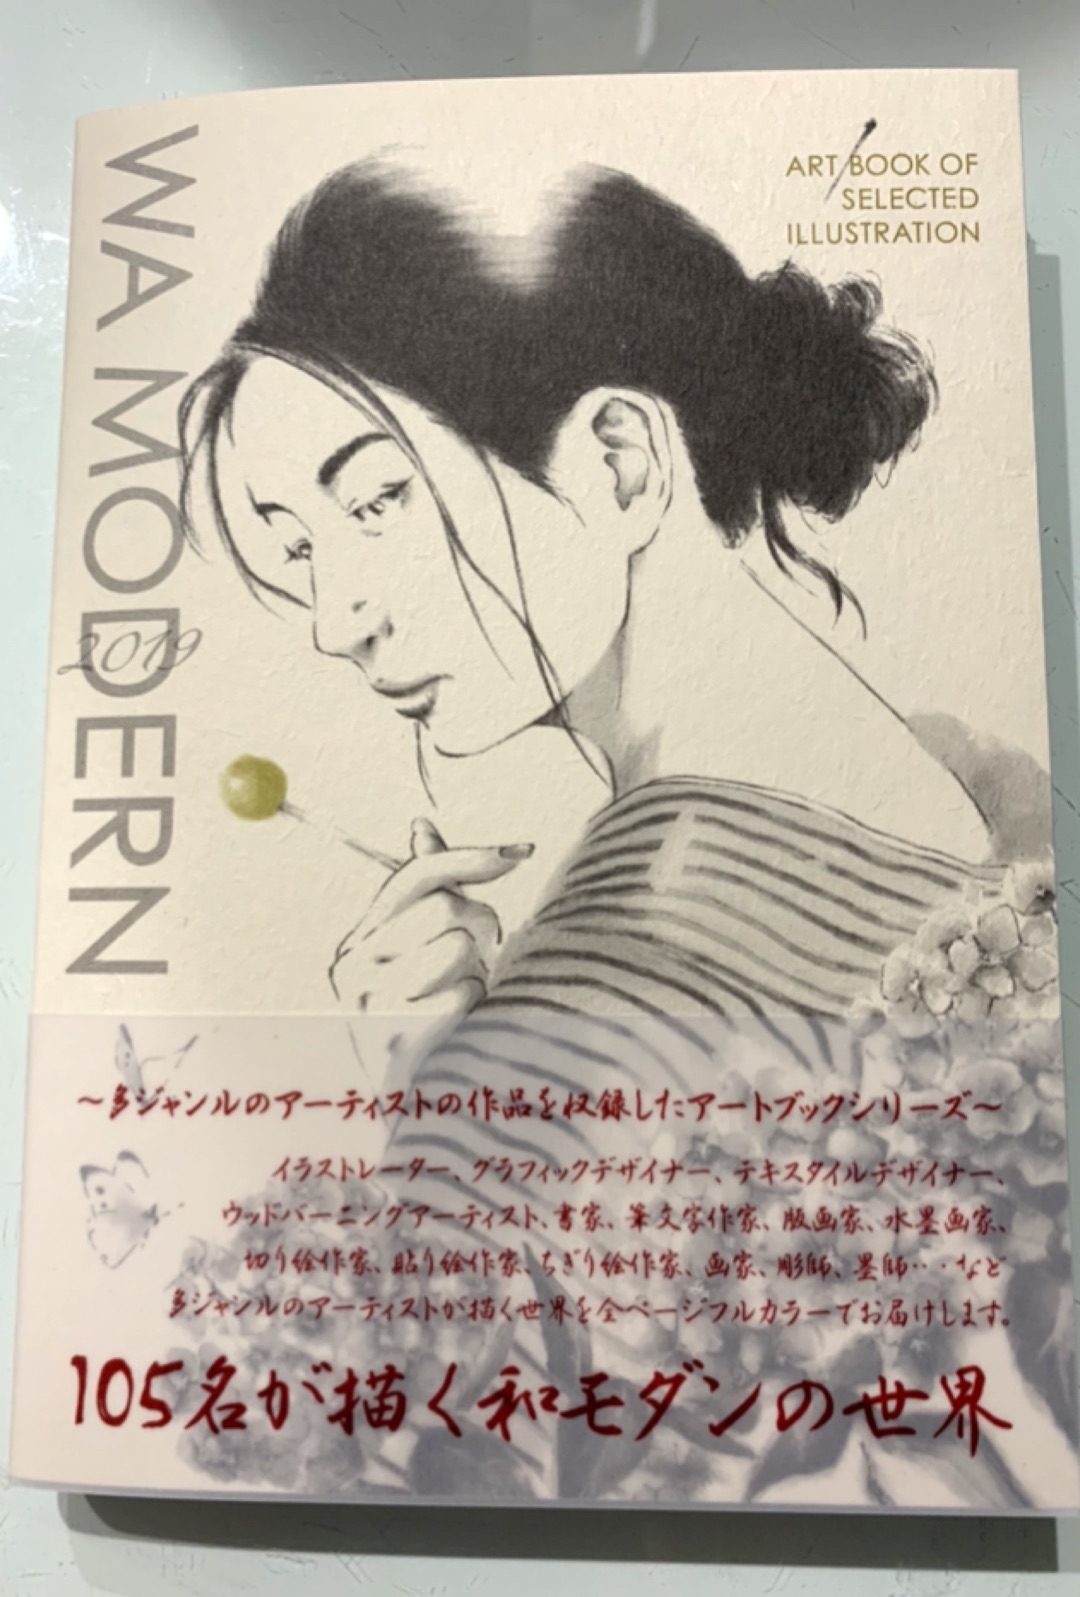 WA MODERN
2019
ART BOOK OF
SELECTED
ILLUSTRATION
〜多ジャンルのアーティストの作品を収録したアートブックシリーズ〜
イラストレーター、グラフィックデザイナー、テキスタイルデザイナー、
ウッドバーニングアーティスト、書家、筆文字作家、版画家、水墨画家、
切り絵作家、貼り絵作家、ちぎり絵作家、画家、彫師、墨師・・・など
多ジャンルのアーティストが描く世界を全ページフルカラーでお届けします。
105名が描く和モダンの世界